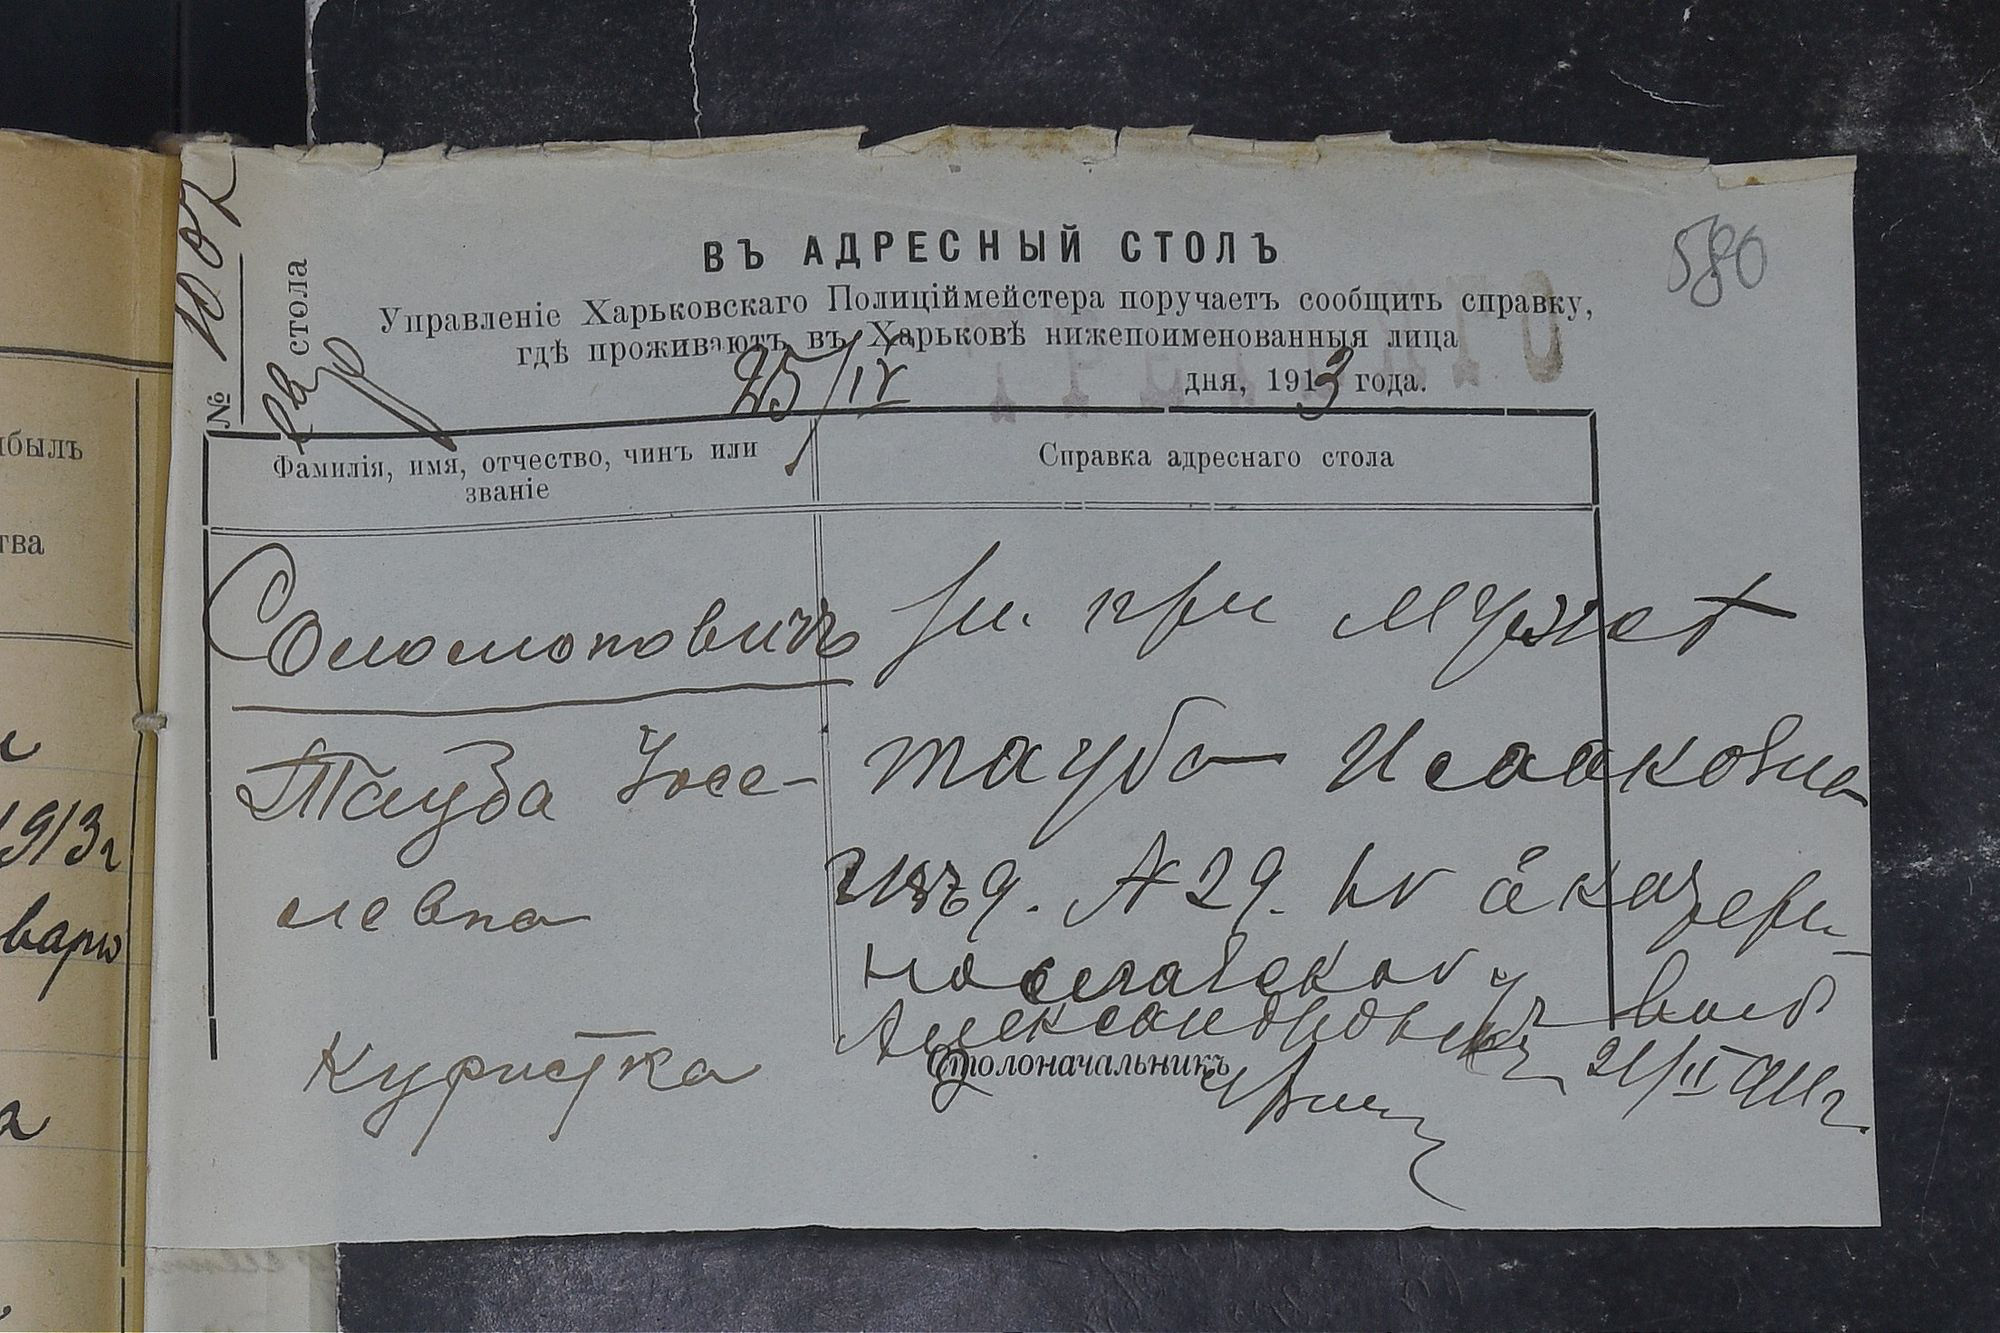 580
№ 1002
стола
ВЪ АДРЕСНЫЙ СТОЛЪ
Управленіе Харьковскаго Полиціймейстера поручаетъ сообщить справку,
гдѣ проживаютъ въ Харьковѣ нижепоименованныя лица
25/IV дня, 1913 года.
Фамилія, имя, отчество, чинъ или
званіе
Справка адреснаго стола
Соломоновичъ
Тауба Іосе-
левна
Куристка
при мужѣ
Тауба Исааковна
№ 29. по Екатери-
нославской у
Александровичъ выб
21/II 911 г.
Столоначальникъ
ибылъ
тва
1913 г
варю